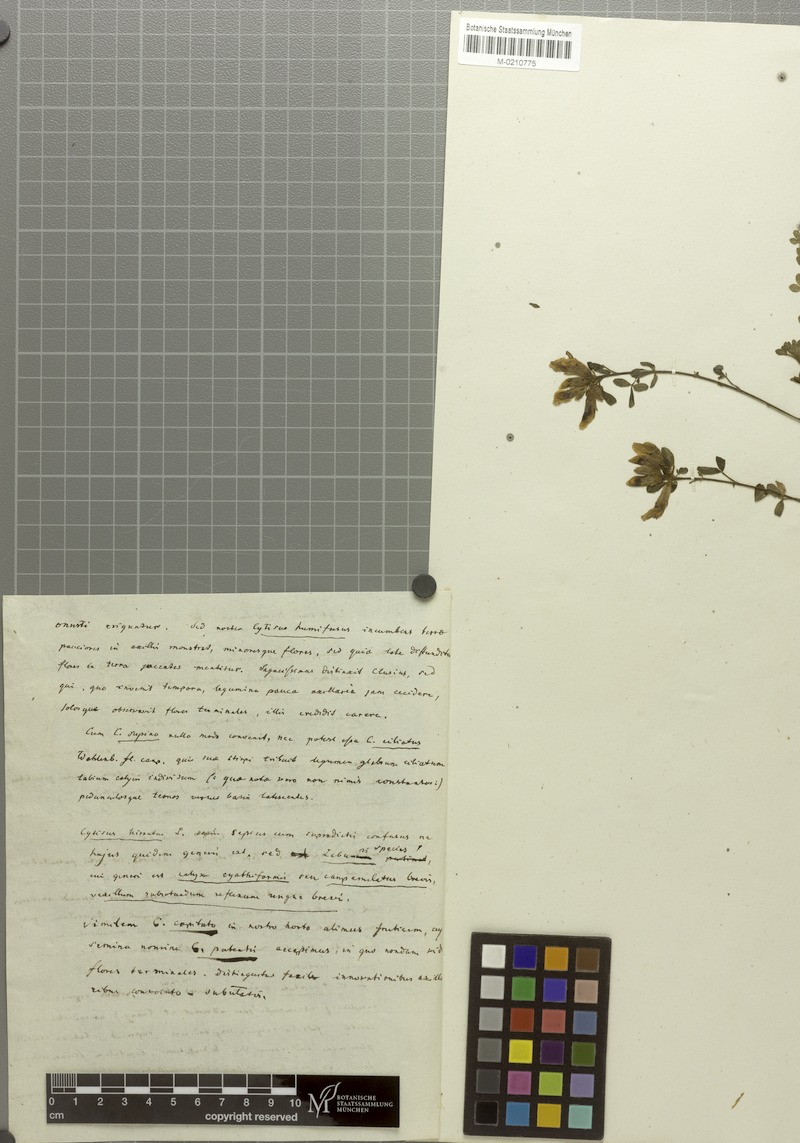 Botanische Staatssammlung München
M-0210775
onusti eriguntur. Sed noster Cytisus humifusus incumbens terrae
pauciores in axillis monstrat, minoresque flores, sed quia late diffunditur
flores in terra jacentes mentitur. Sagacissimus distinxit Clusius, sed
qui, quo invenit tempore, legumina pauca axillaria jam cecidere,
solosque observavit flores terminales, illis credidit carere.
Cum C. supino nullo modo convenit, nec potest esse C. ciliatus
Wahlenb. fl. carp. quia suae stirpi tribuit legumen glabrum ciliatum
labium calycis indivisum (: quae nota vero non nimis constans :)
pedunculosque ternos versus basin
Cytisus hirsutus L. saepius cum supradictis confusus ne
hujus quidem generis est, sed species!
cui generi est calyx cyathiformis seu campanulatus brevis,
vexillum subrotundum reflexum ungue brevi.
Similem C. capitato in nostro horto alimus fruticem, cuj
semina nomine C. patentis accepimus, in quo nondum vid
flores terminales. Distinguitur facile innovationibus axilla
ribus subulatis.
0 1 2 3 4 5 6 7 8 9 10
cm
copyright reserved
BOTANISCHE
STAATSSAMMLUNG
MÜNCHEN